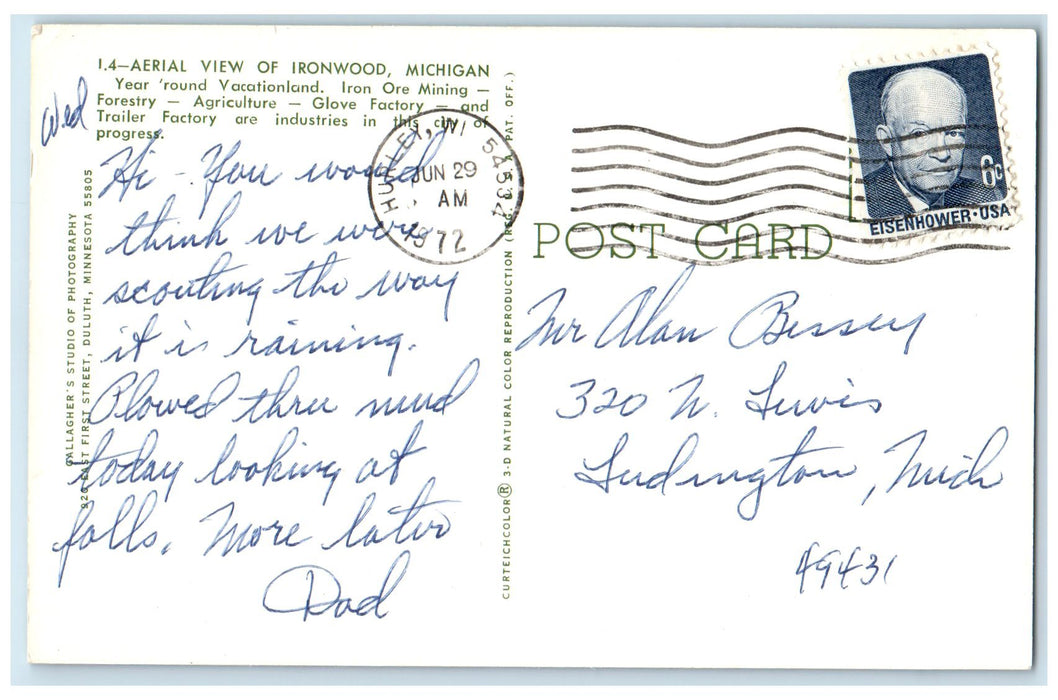 I.4—AERIAL VIEW OF IRONWOOD, MICHIGAN
Year 'round Vacationland. Iron Ore Mining —
Forestry — Agriculture — Glove Factory — and
Trailer Factory are industries in this city of
progress.
Wed
Hi - You would
think we were
scouting the way
it is raining.
Plowed thru mud
today looking at
falls. More later
Dad
GALLAGHER'S STUDIO OF PHOTOGRAPHY
EAST FIRST STREET, DULUTH, MINNESOTA 55805
CURTEICHCOLOR® 3-D NATURAL COLOR REPRODUCTION (REG. U.S. PAT. OFF.)
HURLEY, WI 54534
JUN 29
AM
1972
6c
EISENHOWER·USA
POST CARD
Mr Alan Bissey
320 N. Lewis
Ludington, Mich
49431